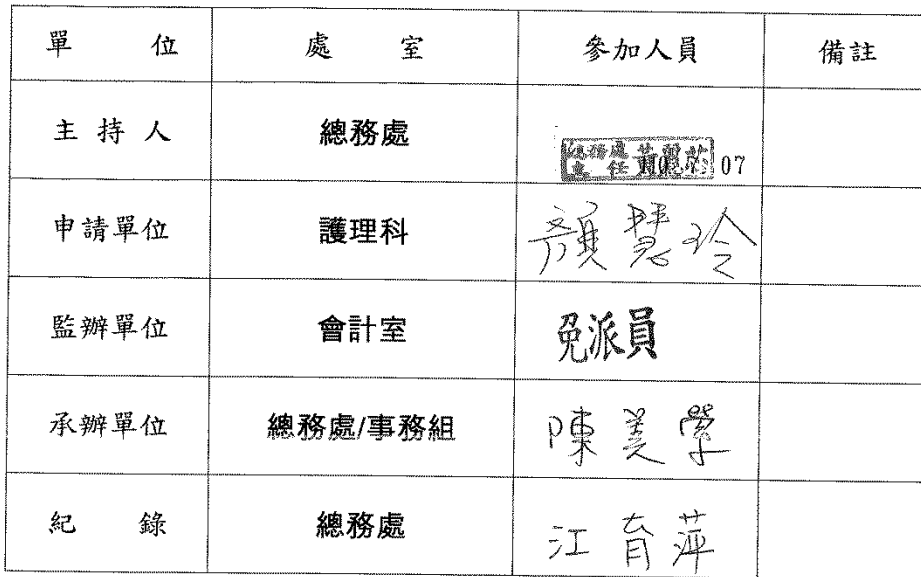 單 位 處 室 參加人員 備註
主 持 人 總務處
總務處
主 任 07
申請單位 護理科 顏慧玲
監辦單位 會計室 免派員
承辦單位 總務處/事務組 陳美
紀 錄 總務處 江育萍